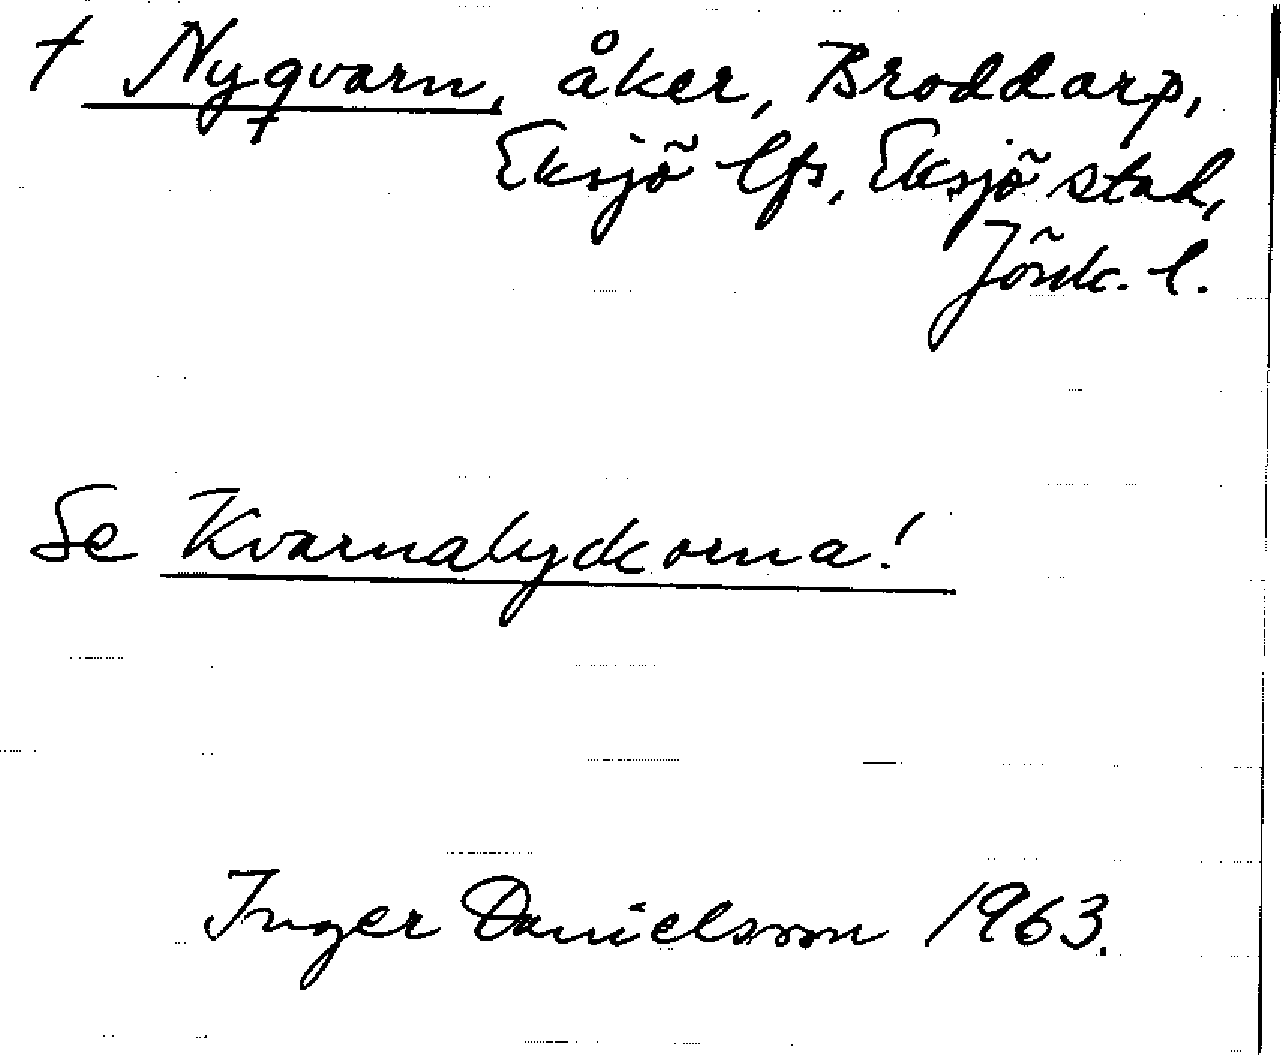 † Nyqvarn, åker, Broddarp,
Eksjö lfs, Eksjö stad,
Jönk. l.
Se Kvarnalyckorna!
Inger Danielsson 1963.